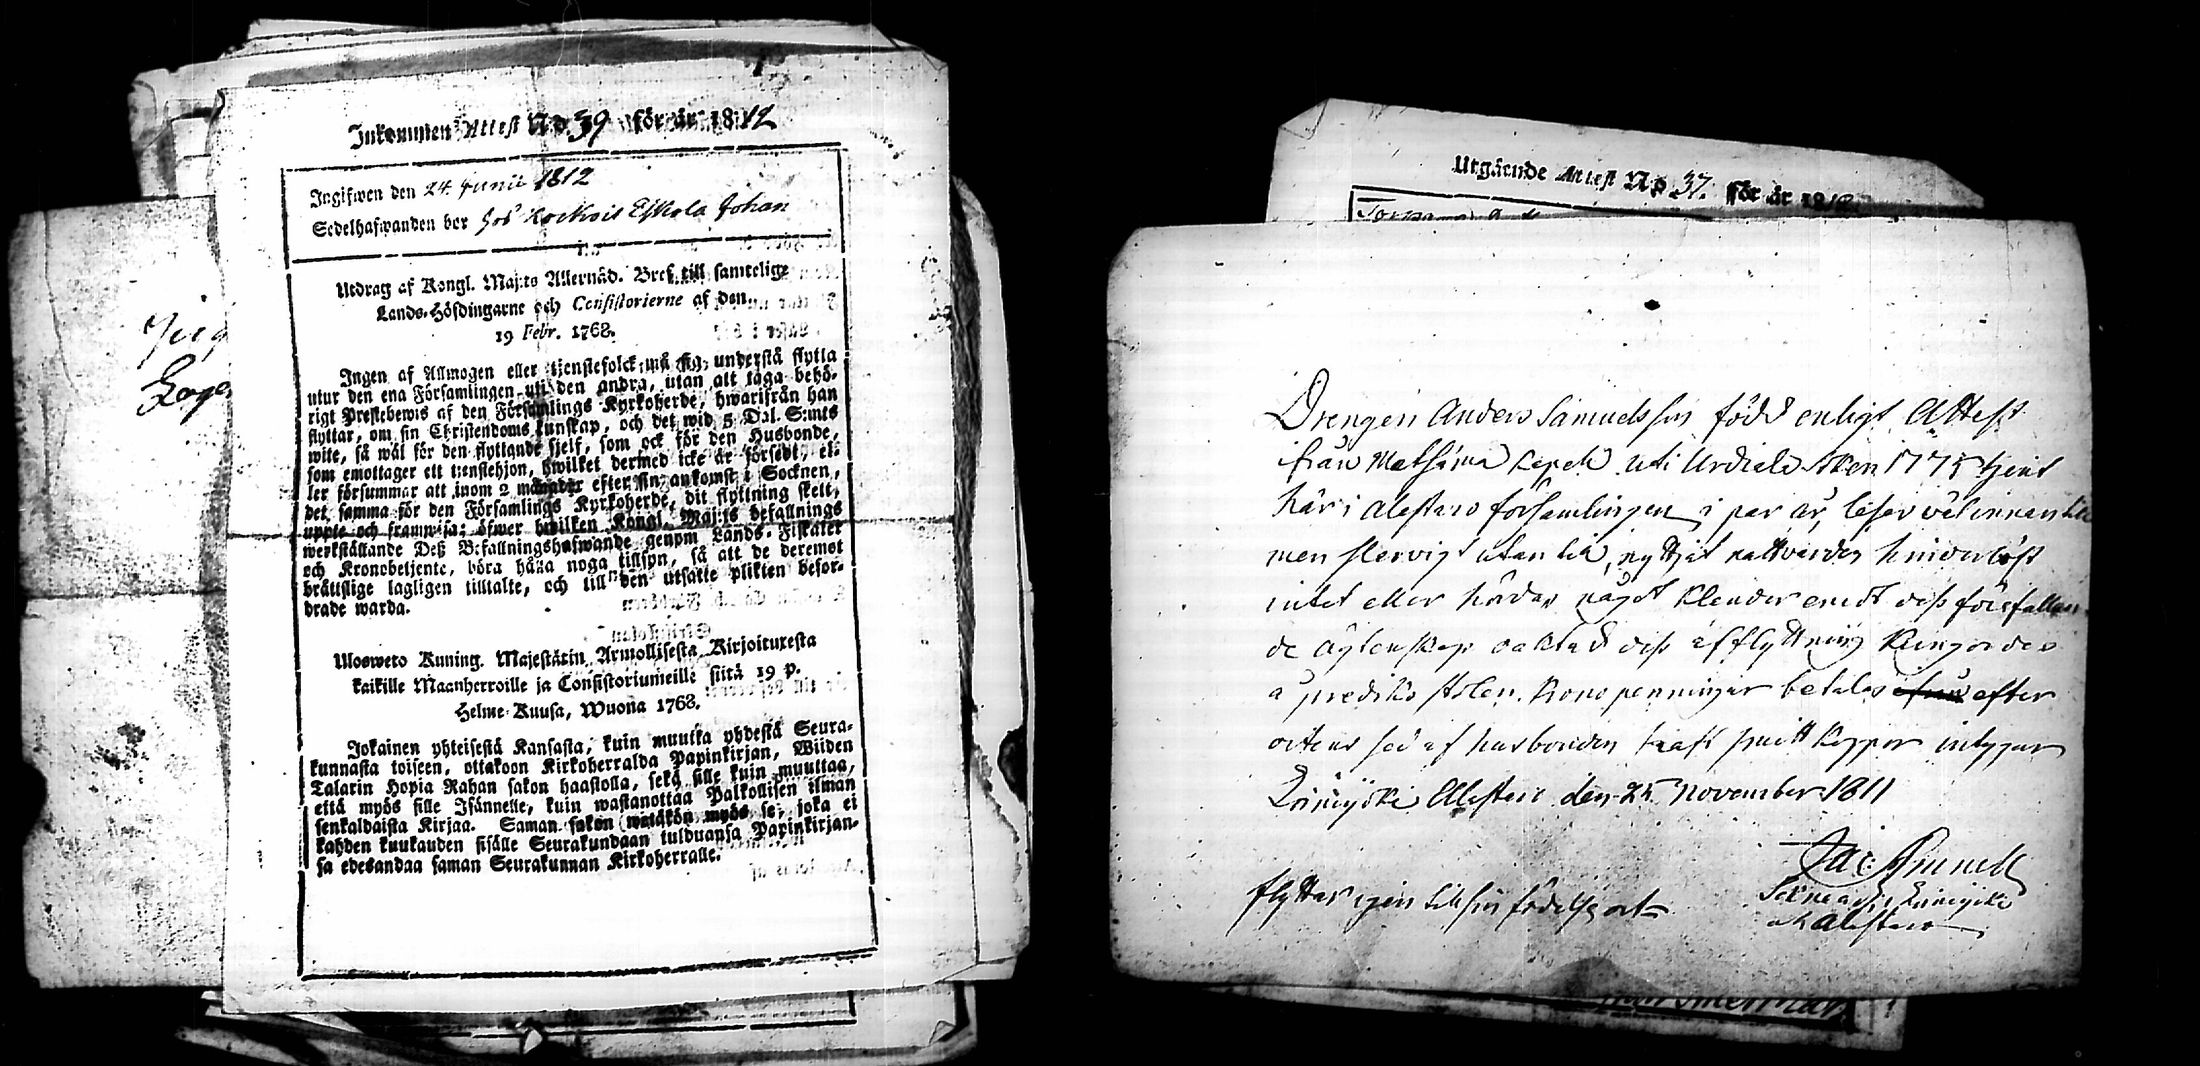 Inkommen Attest No 39 för år 1812
Ingifwen den 24 Junii 1812
Sedelhafwanden bor hos Johan
Utdrag af Kongl. Maj:ts Allernåd. Bref till samtelige
Lands-Höfdingarne och Consistorierne af den
19 Febr. 1768.
Ingen af Allmogen eller tjenstefolck må sig understå flytta
utur den ena Församlingen uti den andra, utan att taga behö-
rigt Prestebewis af den Församlings Kyrkoherde, hwarifrån han
flyttar, om sin Christendoms kunskap, och det wid 5 Dal. S:mts
wite, så wäl för den flyttande sjelf, som ock för den Husbonde,
som emottager ett tjenstehjon, hwilket dermed icke är försedt, el-
ler försummar att inom 2 månader efter sin ankomst i Socknen,
det samma för den Församlings Kyrkoherde, dit flyttning skett,
uppte och framwisa; öfwer hwilken Kongl. Maj:ts befallnings
werkställande Deß Befallningshafwande genom Lands-Fiskaler
och Kronobetjente, böra hålla noga tillsyn, så att de deremot
brättslige lagligen tilltalte, och till den utsatte plikten befor-
drade warda.
Ulosweto Kuning. Majestätin Armollisesta Kirjoituxesta
kaikille Maanherroille ja Consistoriumeille siitä 19 p.
Helme-Kuusa, Wuona 1768.
Jokainen yhteisestä Kansasta, kuin muutta yhdestä Seura-
kunnasta toiseen, ottakoon Kirkoherralda Papinkirjan, Wiiden
Talarin Hopia Rahan sakon haastolla, sekä sille kuin muuttaa,
että myös sille Isännelle, kuin wastanottaa Palkollisen ilman
senkaldaista Kirjaa. Saman sakon wetäkön myös se, joka ei
kahden kuukauden sisälle Seurakundaan tulduansa Papinkirjan-
sa edesandaa saman Seurakunnan Kirkoherralle.
Utgående Attest No 37. för år 1812
Drengen Anders Samuelsson född enligt Attest
ifrån uti Urdiala Åken 1775 tjent
här i Alastaro församlingen i par år, läser väl innan till
men slervigt utan till, nyttjat nattvarden hinderlöst
intet eller hördes något klander emot dess förefallan-
de ägtenskap oaktad dess afflyttning kungordes
a prediko stolen. Krono penningar betalas efter
ortens sed af husbonden haft koppor intygar
Loimijoki Alastaro den 25 November 1811
flyttar igen till sin födelse ort